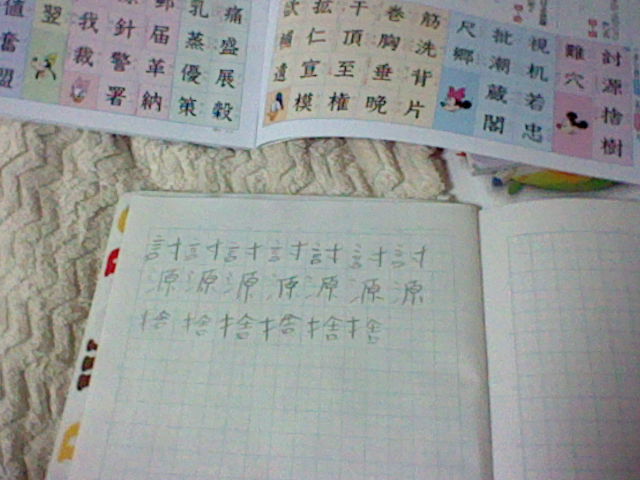 討源捨樹
難穴
視机若忠
批潮蔵閣
尺郷
筋洗背片
巻胸垂晩
干頂至権
拡仁宣模
欲補遺
痛盛展穀
乳蒸優策
郵届革納
針警署
我裁
翌
値奮盟
討討討討討討討
源源源源源源源
捨捨捨捨捨捨